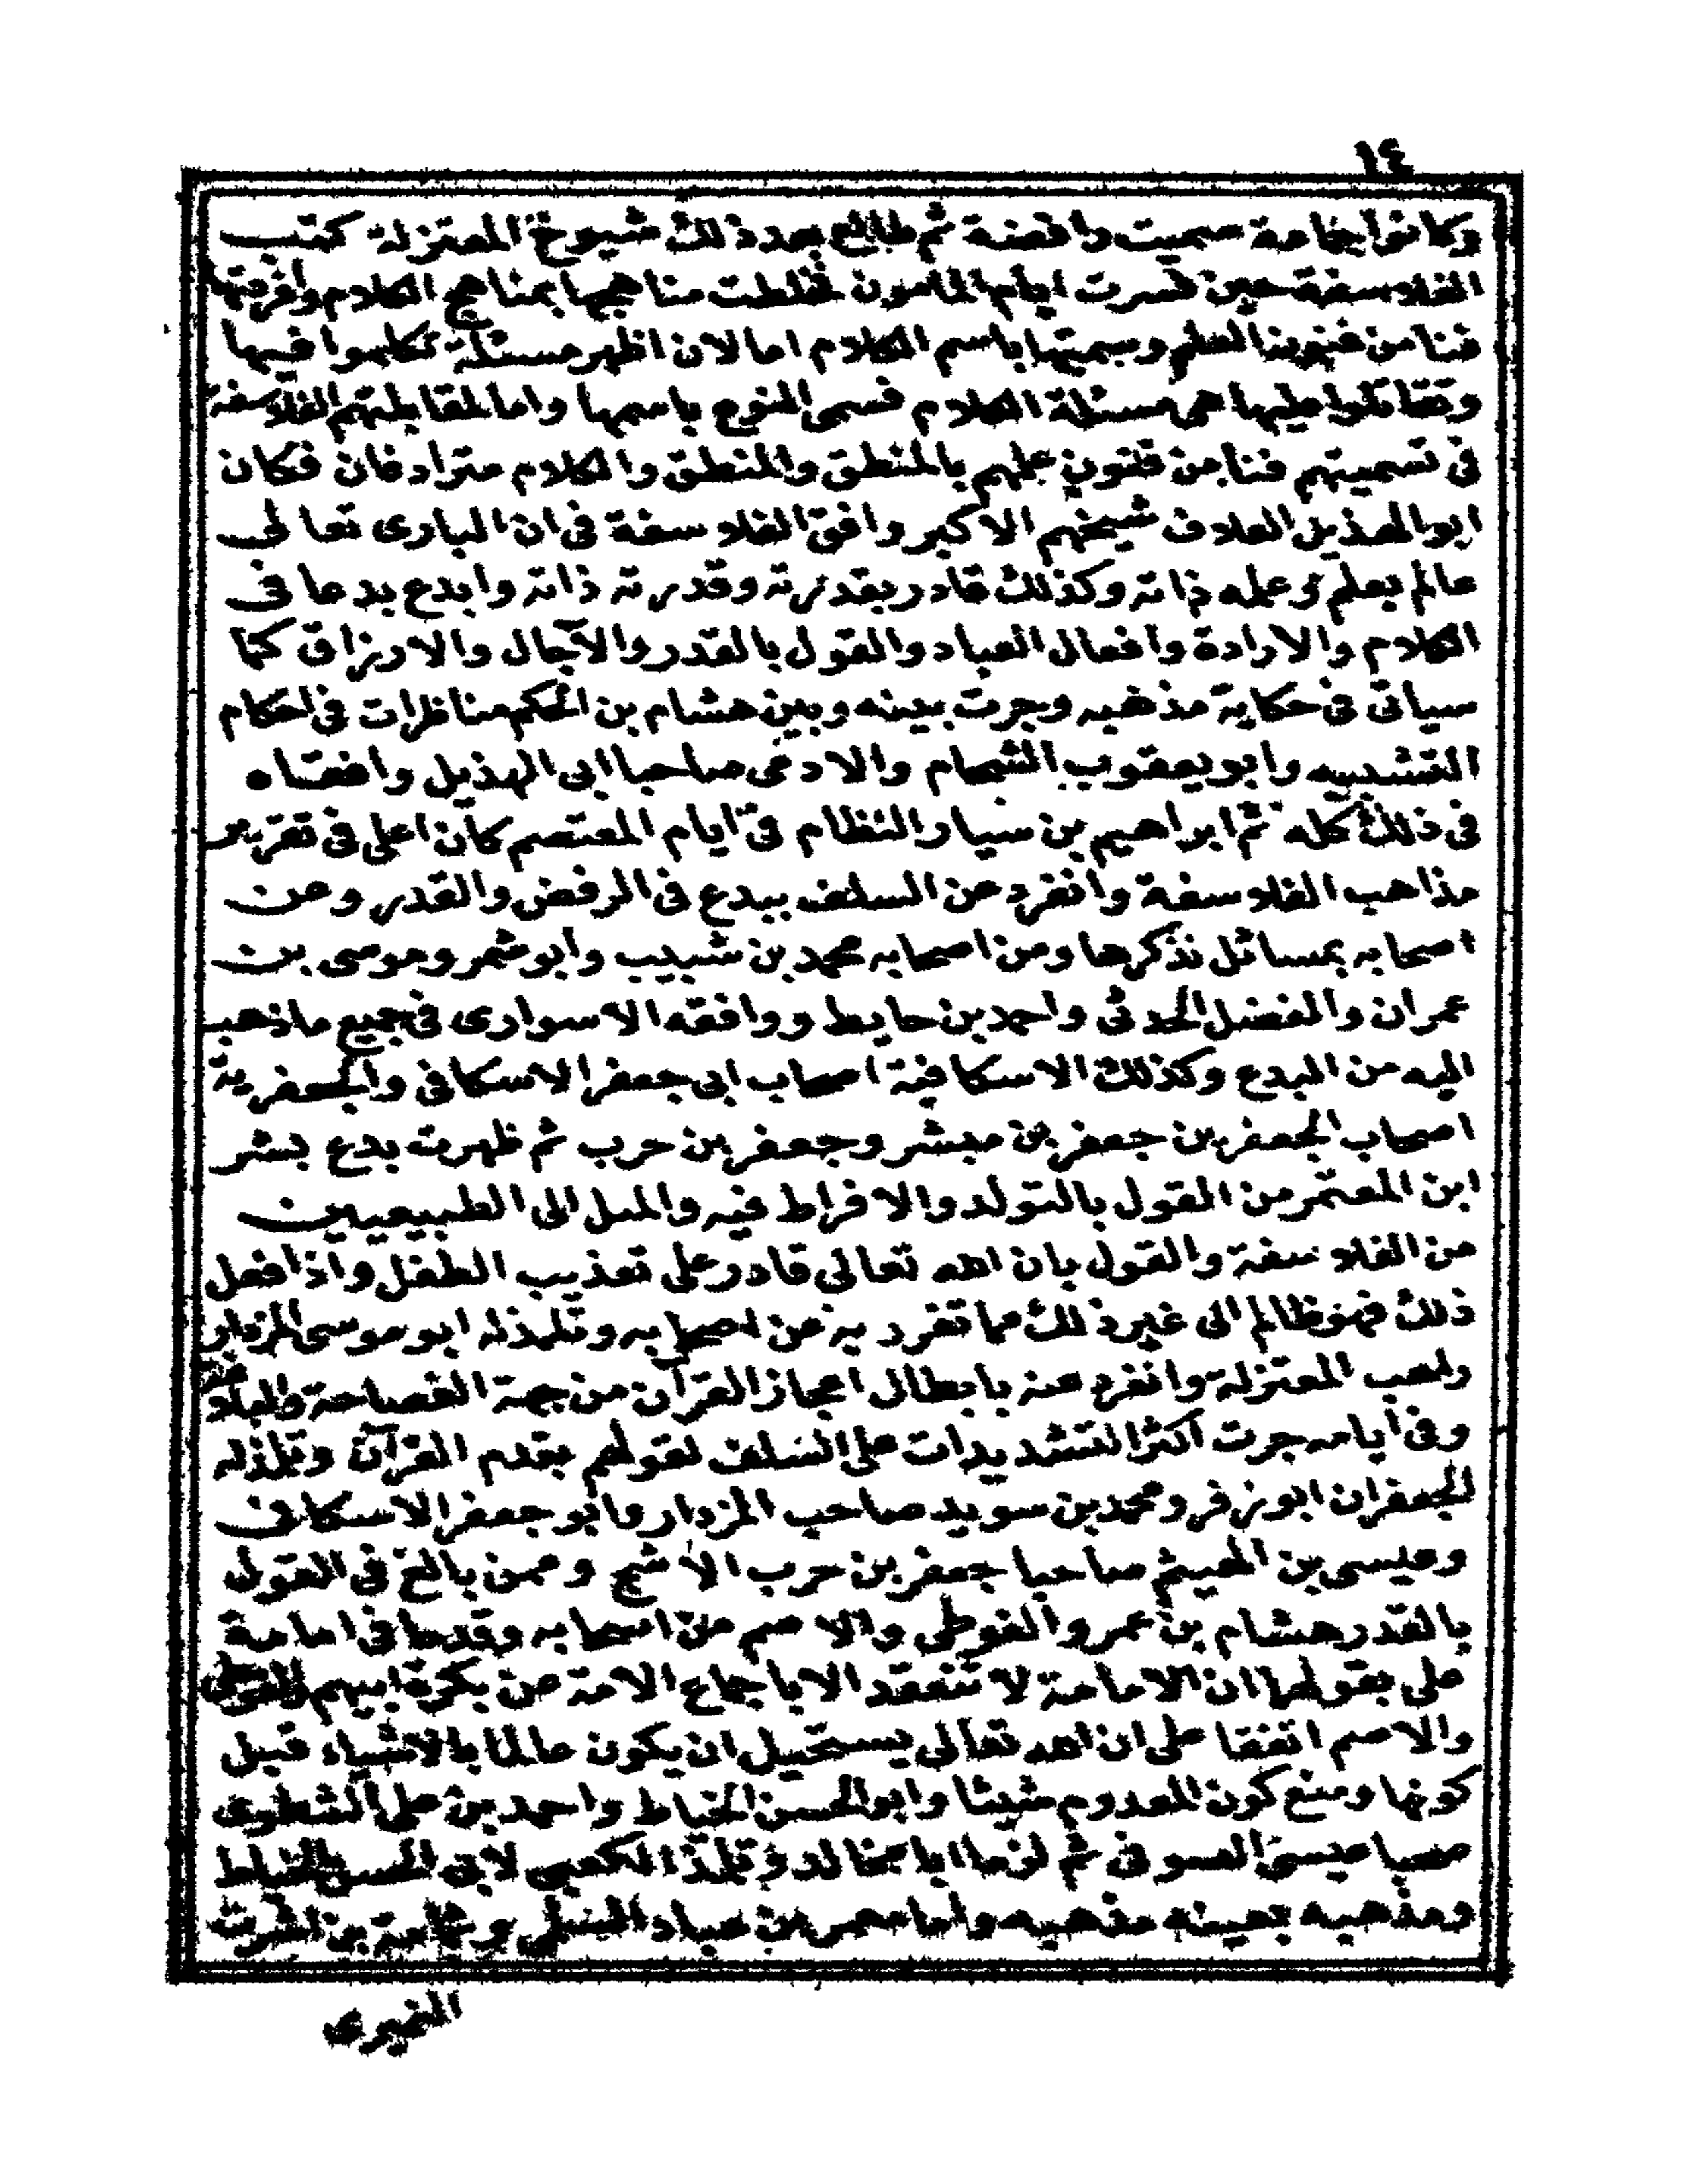 ١٤
وكانوا جماعة سميت رافضة ثم طالع بعد ذلك شيوخ المعتزلة كتب
الفلاسفة حين فسرت ايام المامون فخلطت مناهجها بمناهج الكلام وافردتها
فنا من فنون العلم وسمتها باسم الكلام اما لان اظهر مسئلة تكلموا فيها
وتقاتلوا عليها هى مسئلة الكلام فسمى النوع باسمها واما لمقابلتهم الفلاسفة
فى تسميتهم فنا من فنون علمهم بالمنطق والمنطق والكلام مترادفان فكان
ابو الهذيل العلاف شيخهم الاكبر وافق الفلاسفة فى ان البارى تعالى
عالم بعلم وعلمه ذاته وكذلك قادر بقدرته وقدرته ذاته وابدع بدعا فى
الكلام والارادة وافعال العباد والقول بالقدر والآجال والارزاق كما
سياتى فى حكاية مذهبه وجرت بينه وبين هشام بن الحكم مناظرات فى احكام
التشبيه وابو يعقوب الشحام والادمى صاحبا ابى الهذيل وافقاه
فى ذلك كله ثم ابراهيم بن سيار النظام فى ايام المعتصم كان اعلى فى تقرير
مذاهب الفلاسفة وانفرد عن السلف ببدع فى الرفض والقدر وعن
اصحابه بمسائل نذكرها ومن اصحابه محمد بن شبيب وابو شمر وموسى بن
عمران والفضل الحدثى واحمد بن حايط ووافقه الاسوارى فى جميع ماذهب
اليه من البدع وكذلك الاسكافية اصحاب ابى جعفر الاسكافى والجعفرية
اصحاب الجعفرين جعفر بن مبشر وجعفر بن حرب ثم ظهرت بدع بشر
ابن المعتمر من القول بالتولد والافراط فيه والميل الى الطبيعيين
من الفلاسفة والقول بان الله تعالى قادر على تعذيب الطفل واذا فعل
ذلك فهو ظالم الى غير ذلك مما تفرد به عن اصحابه وتلمذ له ابو موسى المزدار
راهب المعتزلة وانفرد عنه بابطال اعجاز القرآن من جهة الفصاحة والبلاغة
وفى ايامه جرت اكثر التشديدات على السلف لقولهم بقدم القرآن وتلمذ له
الجعفران ابو زفر ومحمد بن سويد صاحب المزدار وابو جعفر الاسكافى
وعيسى بن الهيثم صاحبا جعفر بن حرب الاشج وممن بالغ فى القول
بالقدر هشام بن عمرو الفوطى والاصم من اصحابه وقدحا فى امامة
على بقولهما ان الامامة لا تنعقد الا باجماع الامة عن بكرة ابيهم والفوطى
والاصم اتفقا على ان الله تعالى يستحيل ان يكون عالما بالاشياء قبل
كونها ومنع كون المعدوم شيئا وابو الحسن الخياط واحمد بن على الشطوى
صحبا عيسى الصوفى ثم لزما ابا مخالد وتلمذ الكعبى لابى الحسن الخياط
ومذهبه بعينه مذهبه واما معمر بن عباد السلمى وثمامة بن اشرس
النميرى